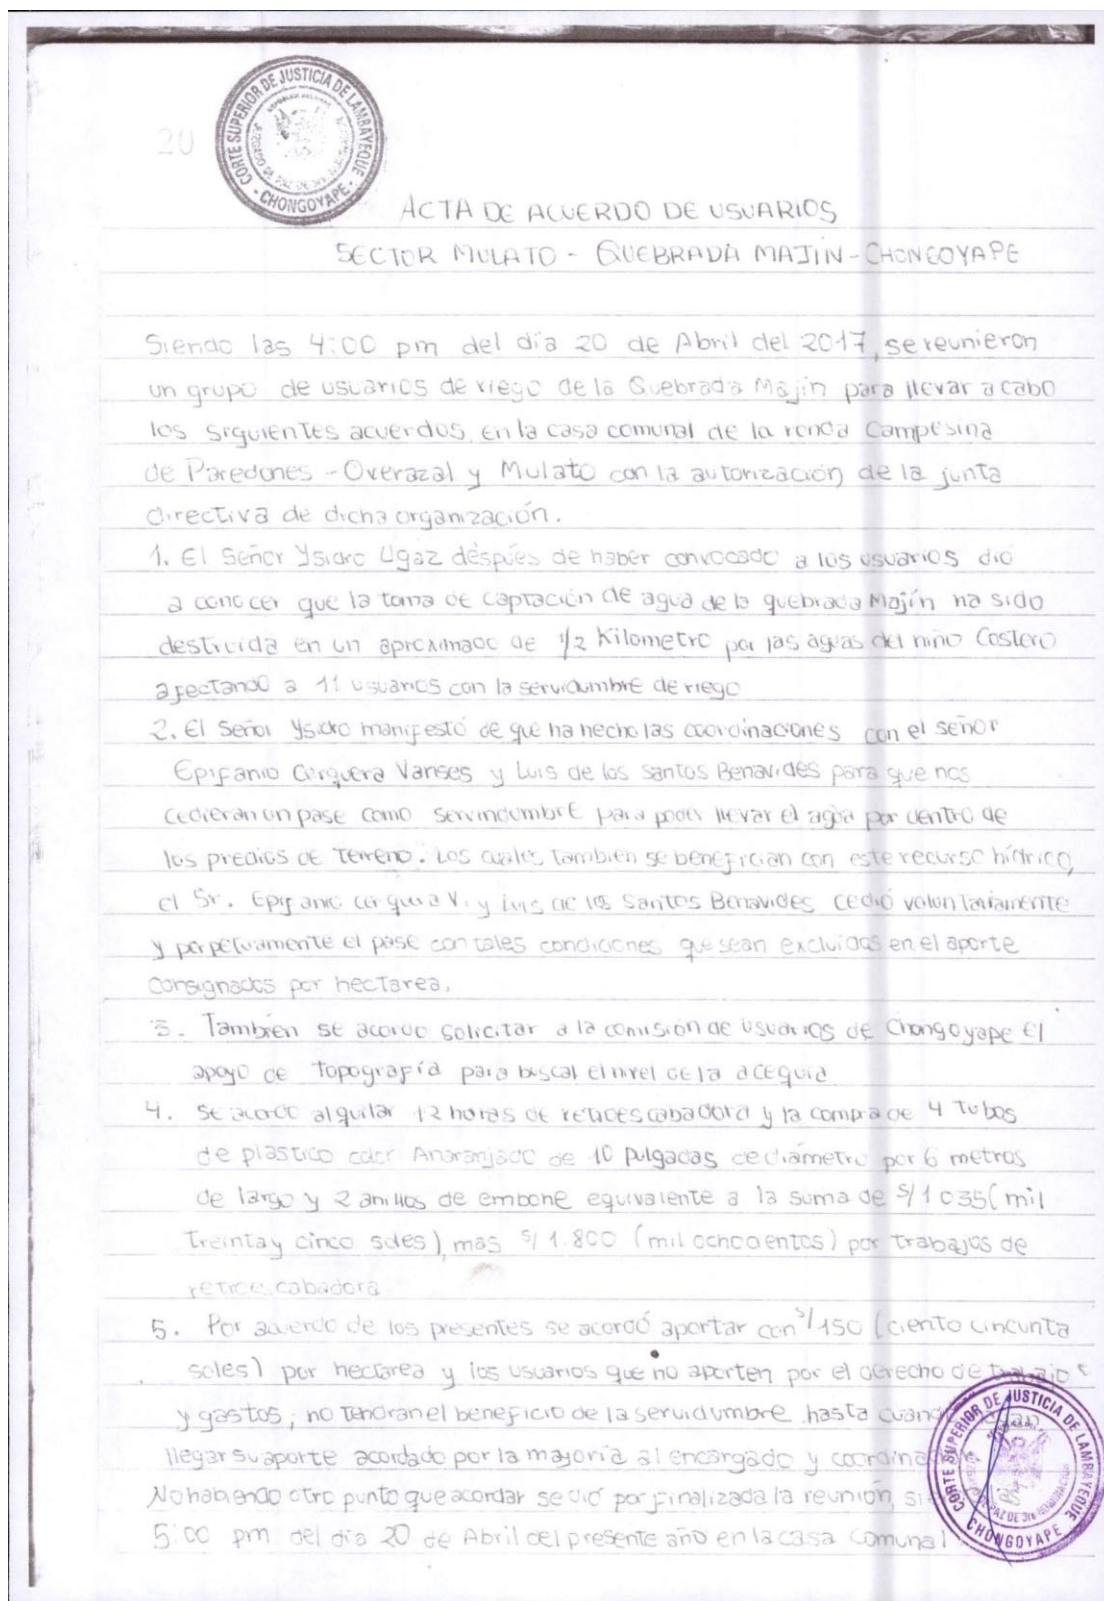 20
CORTE SUPERIOR DE JUSTICIA DE LAMBAYEQUE
JUZGADO DE PAZ DE 3ra
- CHONGOYAPE -
ACTA DE ACUERDO DE USUARIOS
SECTOR MULATO - QUEBRADA MAJIN - CHONGOYAPE
Siendo las 4:00 pm del día 20 de Abril del 2017, se reunieron
un grupo de usuarios de riego de la Quebrada Majín para llevar a cabo
los siguientes acuerdos, en la casa comunal de la ronda Campesina
de Paredones - Overazal y Mulato con la autorización de la junta
directiva de dicha organización.
1. El Señor Ysidro Ugaz déspues de haber convocado a los usuarios dió
a conocer que la toma de captación de agua de la quebrada Majín ha sido
destruida en un aproximado de 1/2 Kilometro por las aguas del niño Costero
afectando a 11 usuarios con la servidumbre de riego
2. El Señor Ysidro manifestó de que ha hecho las coordinaciones con el señor
Epifanio Cerquera Vanses y Luis de los Santos Benavides para que nos
cedieran un pase como servindumbre para poder llevar el agua por dentro de
los predios de terreno. Los cuales también se benefician con este recurso hídrico,
el Sr. Epifanio cerquera V. y Luis de los Santos Benavides cedió voluntariamente
y perpetuamente el pase con tales condiciones que sean excluidas en el aporte
consignados por hectarea.
3. También se acordo solicitar a la comisión de usuarios de Chongoyape el
apoyo de topografía para buscal el nivel de la acequia
4. se acordo alquilar 12 horas de retroescabadora y la compra de 4 Tubos
de plastico color Anaranjado de 10 pulgadas de diámetro por 6 metros
de largo y 2 anillos de embone equivalente a la suma de S/1 035 (mil
treinta y cinco soles), mas S/ 1.800 (mil ochocientos) por trabajos de
cabadora
5. Por acuerdo de los presentes se acordó aportar con S/150 (ciento cincunta
soles) por hectarea y los usuarios que no aporten por el derecho de trabajo
y gastos, no tendran el beneficio de la servidumbre hasta
llegar su aporte acordado por la mayoría al encargado y
No habiendo otro punto que acordar se dió por finalizada la reunión,
5:00 pm del día 20 de Abril del presente año en la casa comunal
CORTE SUPERIOR DE JUSTICIA DE LAMBAYEQUE
CHONGOYAPE